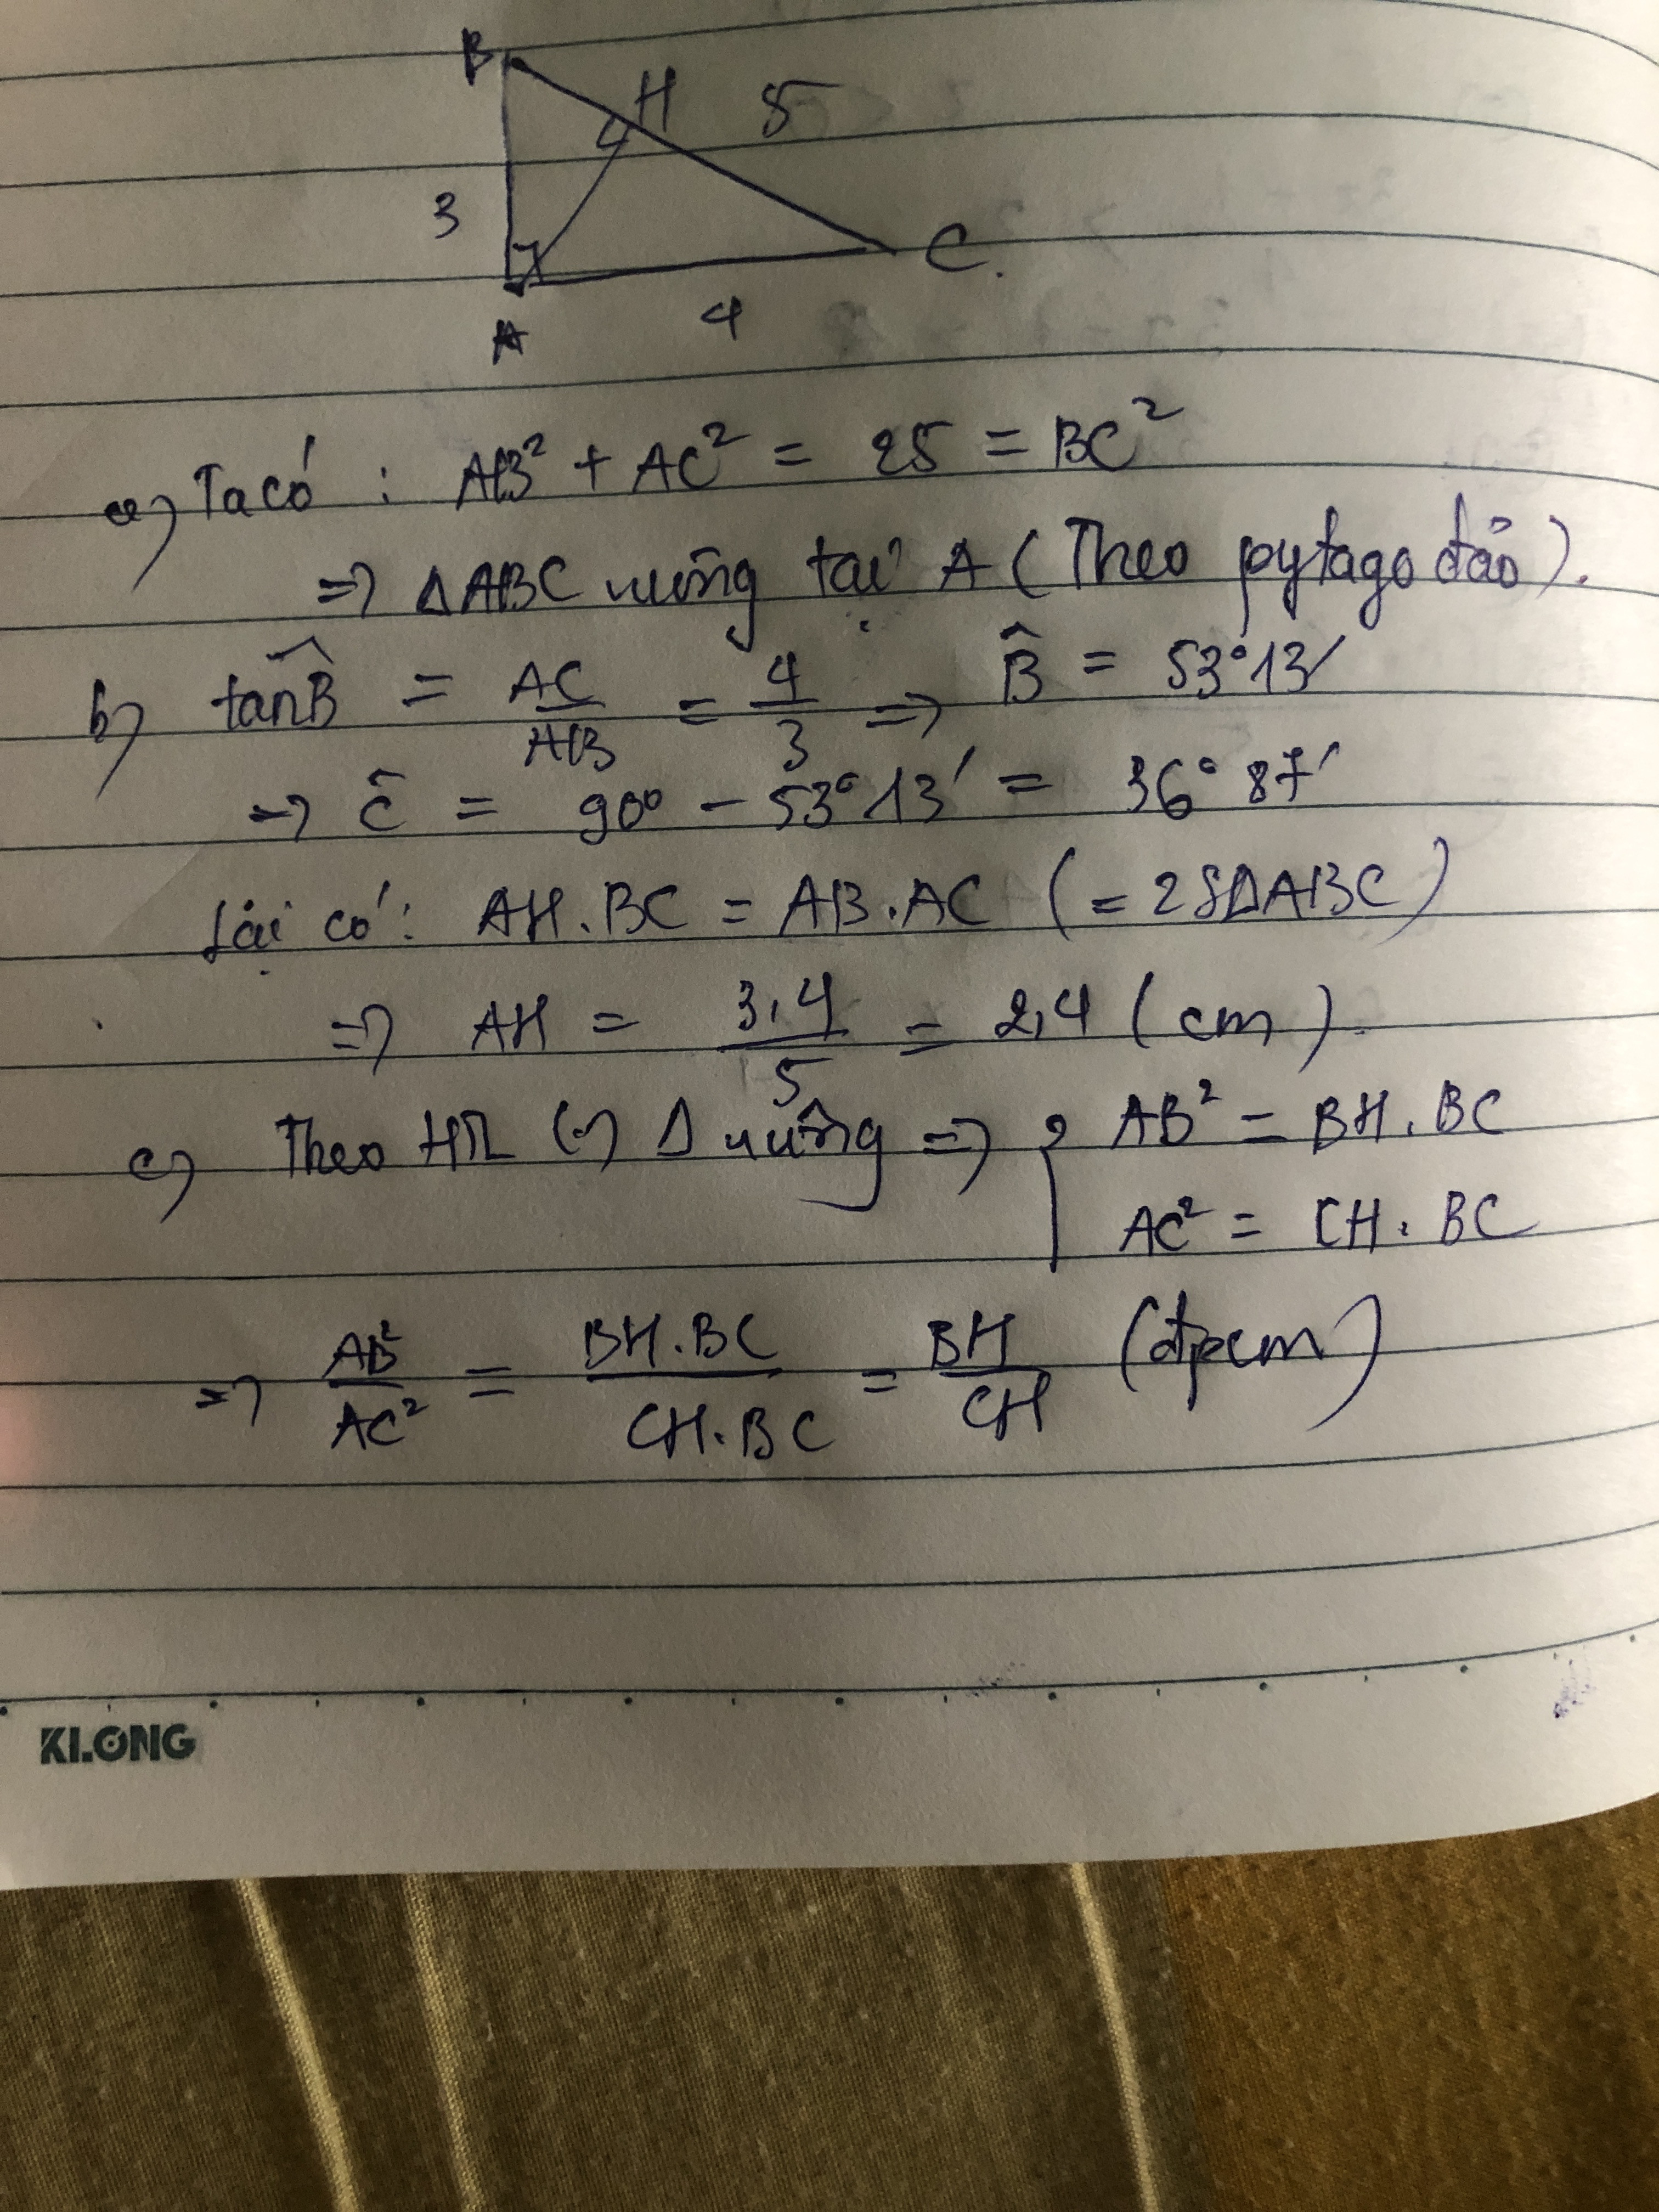 B
H 5
3
C.
4
A
a) Ta có : AB² + AC² = 25 = BC²
=> ΔABC vuông tại A ( Theo pytago đảo ).
b) tanB̂ = AC/AB = 4/3 => B̂ = 53°13'
=> Ĉ = 90° - 53°13' = 36°87'
Lại có: AH.BC = AB.AC (= 2SΔABC)
=> AH = 3.4/5 = 2,4 ( cm ).
c) Theo HTL Δ vuông => { AB² = BH.BC
AC² = CH.BC
=> AB²/AC² = BH.BC/CH.BC = BH/CH (đpcm)
KLONG